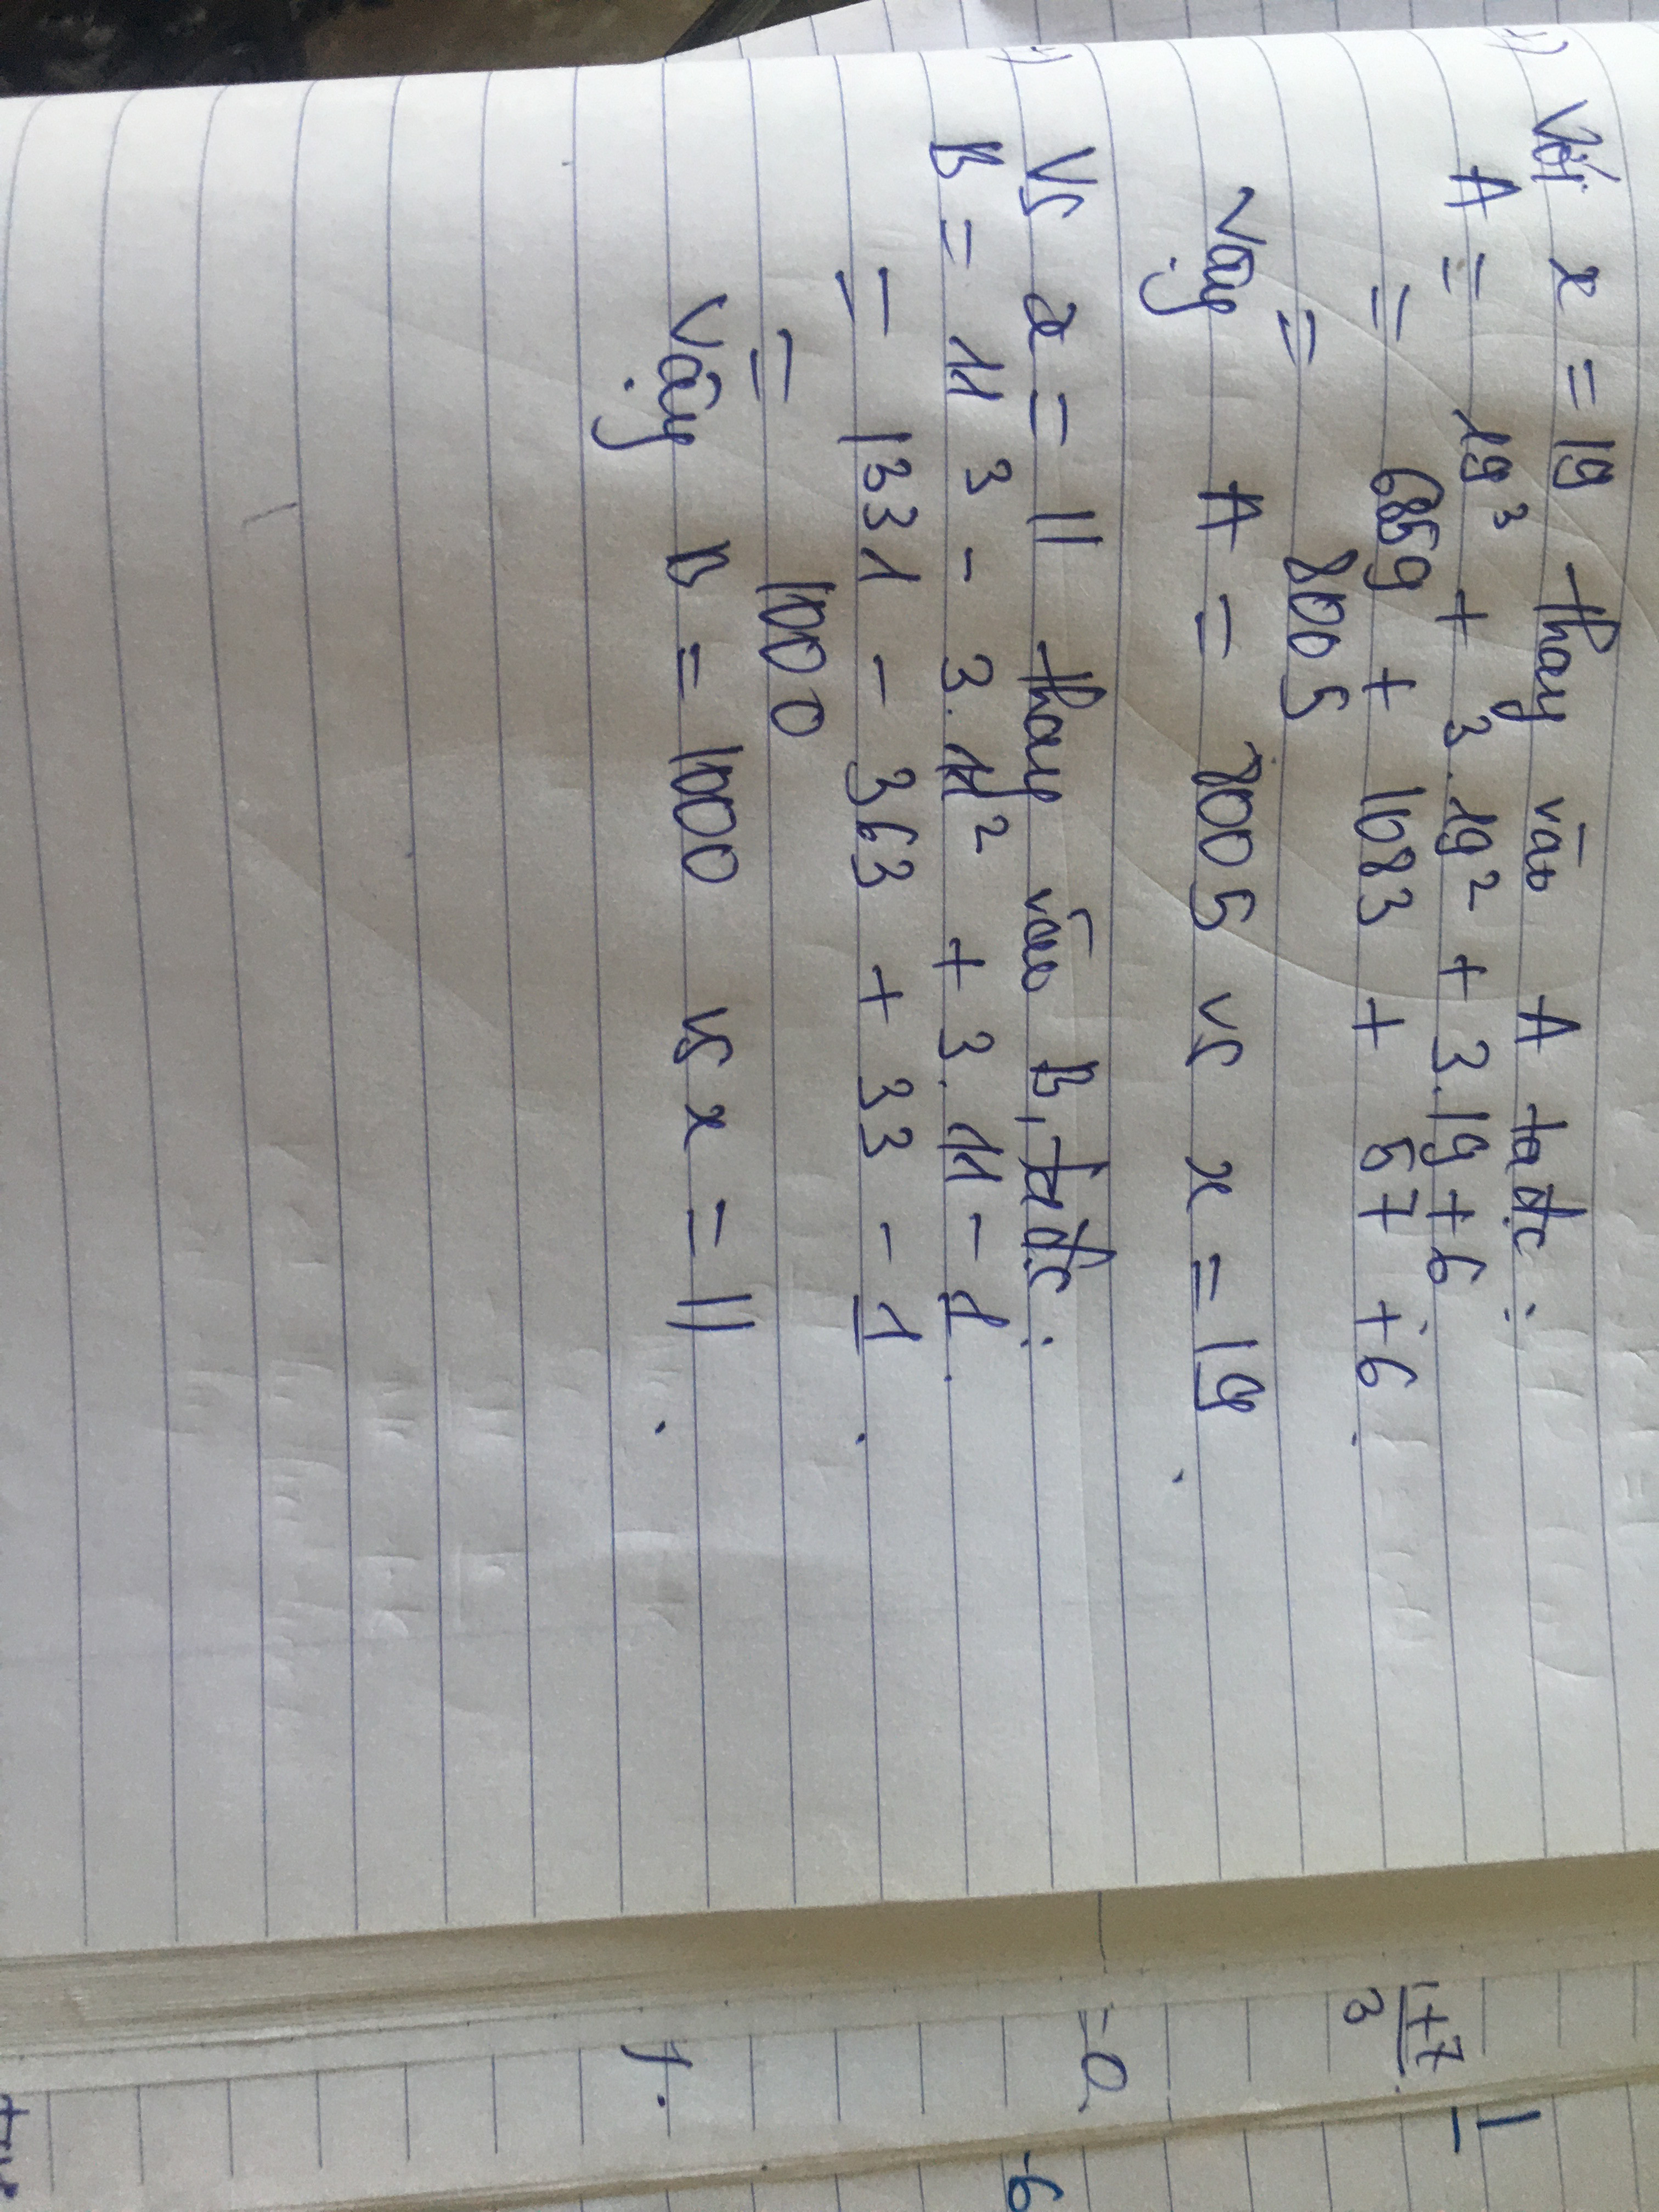 Với x = 19 thay vào A ta đc :
A = 19³ + 3.19² + 3.19 + 6
= 6859 + 1083 + 57 + 6
= 8005
Vậy A = 8005 vs x = 19
Vs x = 11 thay vào B, ta đc :
B = 11³ - 3.11² + 3.11 - 1
= 1331 - 363 + 33 - 1
= 1000
Vậy B = 1000 vs x = 11
1+7
3
= 0
-6